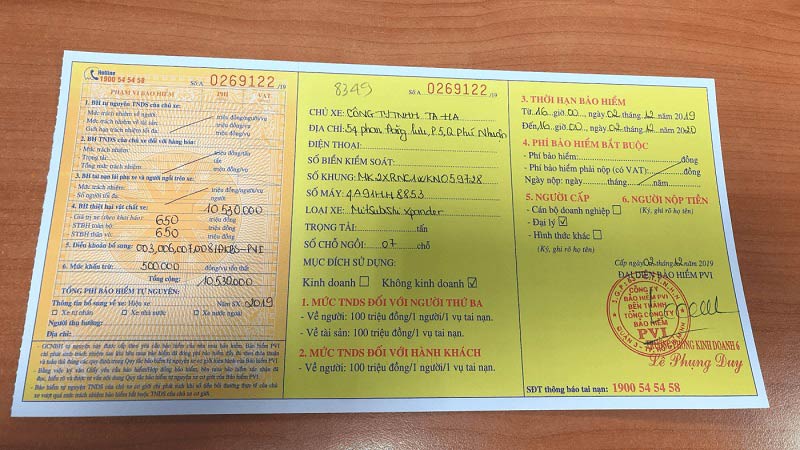 Hotline
1900 54 54 58
Số A 0269122 /19
PHẠM VI BẢO HIỂM PHÍ VAT
1. BH tự nguyện TNDS của chủ xe:
- Mức trách nhiệm về người: triệu đồng/người/vụ
- Mức trách nhiệm về tài sản: triệu đồng/vụ
- Giới hạn trách nhiệm tối đa: triệu đồng/vụ
2. BH TNDS của chủ xe đối với hàng hóa:
- Mức trách nhiệm: triệu đồng/tấn
- Trọng tải: tấn
- Tổng mức trách nhiệm: triệu đồng/vụ
3. BH tai nạn lái phụ xe và người ngồi trên xe:
- Mức trách nhiệm: triệu đồng/người/vụ
- Số người tối đa: người
4. BH thiệt hại vật chất xe: 10.530.000
- Giá trị xe (theo khai báo): 650 triệu đồng
- STBH toàn bộ: 650 triệu đồng
- STBH thân vỏ: triệu đồng
5. Điều khoản bổ sung: 003,006,007,008/ĐKBS-PVI
6. Mức khấu trừ: 500.000 đồng/vụ tổn thất
Tổng cộng: 10.530.000
TỔNG PHÍ BẢO HIỂM TỰ NGUYỆN:
Thông tin bổ sung về xe: Hiệu xe: Năm SX: 2019
Xe tư nhân Xe nhà nước Xe nước ngoài
Người thụ hưởng:
Địa chỉ:
8349
Số A 0269122 /19
CHỦ XE: CÔNG TY TNHH TA HA
ĐỊA CHỈ: 54 phan đăng lưu, P.5, Q Phú Nhuận
ĐIỆN THOẠI:
SỐ BIỂN KIỂM SOÁT:
SỐ KHUNG: MK2XRNC1WKN059728
SỐ MÁY: 4A91HH8853
LOẠI XE: Mitsubishi Xpander
TRỌNG TẢI: tấn
SỐ CHỖ NGỒI: 07 chỗ
MỤC ĐÍCH SỬ DỤNG:
Kinh doanh Không kinh doanh
1. MỨC TNDS ĐỐI VỚI NGƯỜI THỨ BA
- Về người: 100 triệu đồng/1 người/1 vụ tai nạn.
- Về tài sản: 100 triệu đồng/1 vụ tai nạn.
2. MỨC TNDS ĐỐI VỚI HÀNH KHÁCH
- Về người: 100 triệu đồng/1 người/1 vụ tai nạn.
3. THỜI HẠN BẢO HIỂM
Từ 16 giờ 00, ngày 02 tháng 12 năm 2019
Đến 16 giờ 00, ngày 02 tháng 12 năm 2020
4. PHÍ BẢO HIỂM BẮT BUỘC
- Phí bảo hiểm: đồng
- Phí bảo hiểm phải nộp (có VAT): đồng
Ngày nộp: ngày tháng năm
5. NGƯỜI CẤP 6. NGƯỜI NỘP TIỀN
- Cán bộ doanh nghiệp (Ký, ghi rõ họ tên)
- Đại lý
- Hình thức khác:
(Ký, ghi rõ họ tên)
Cấp ngày 02 tháng 12 năm 2019
ĐẠI DIỆN BẢO HIỂM PVI
CÔNG TY
BẢO HIỂM PVI
BẾN THÀNH
TỔNG CÔNG TY
BẢO HIỂM
PVI
TRƯỞNG PHÒNG KINH DOANH 6
Lê Phụng Duy
SĐT thông báo tai nạn: 1900 54 54 58